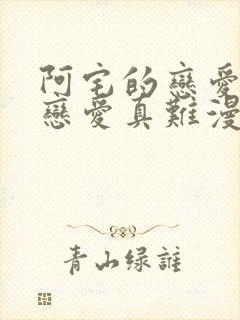 阿宅的戀愛
戀愛真難漫
青山绿誰